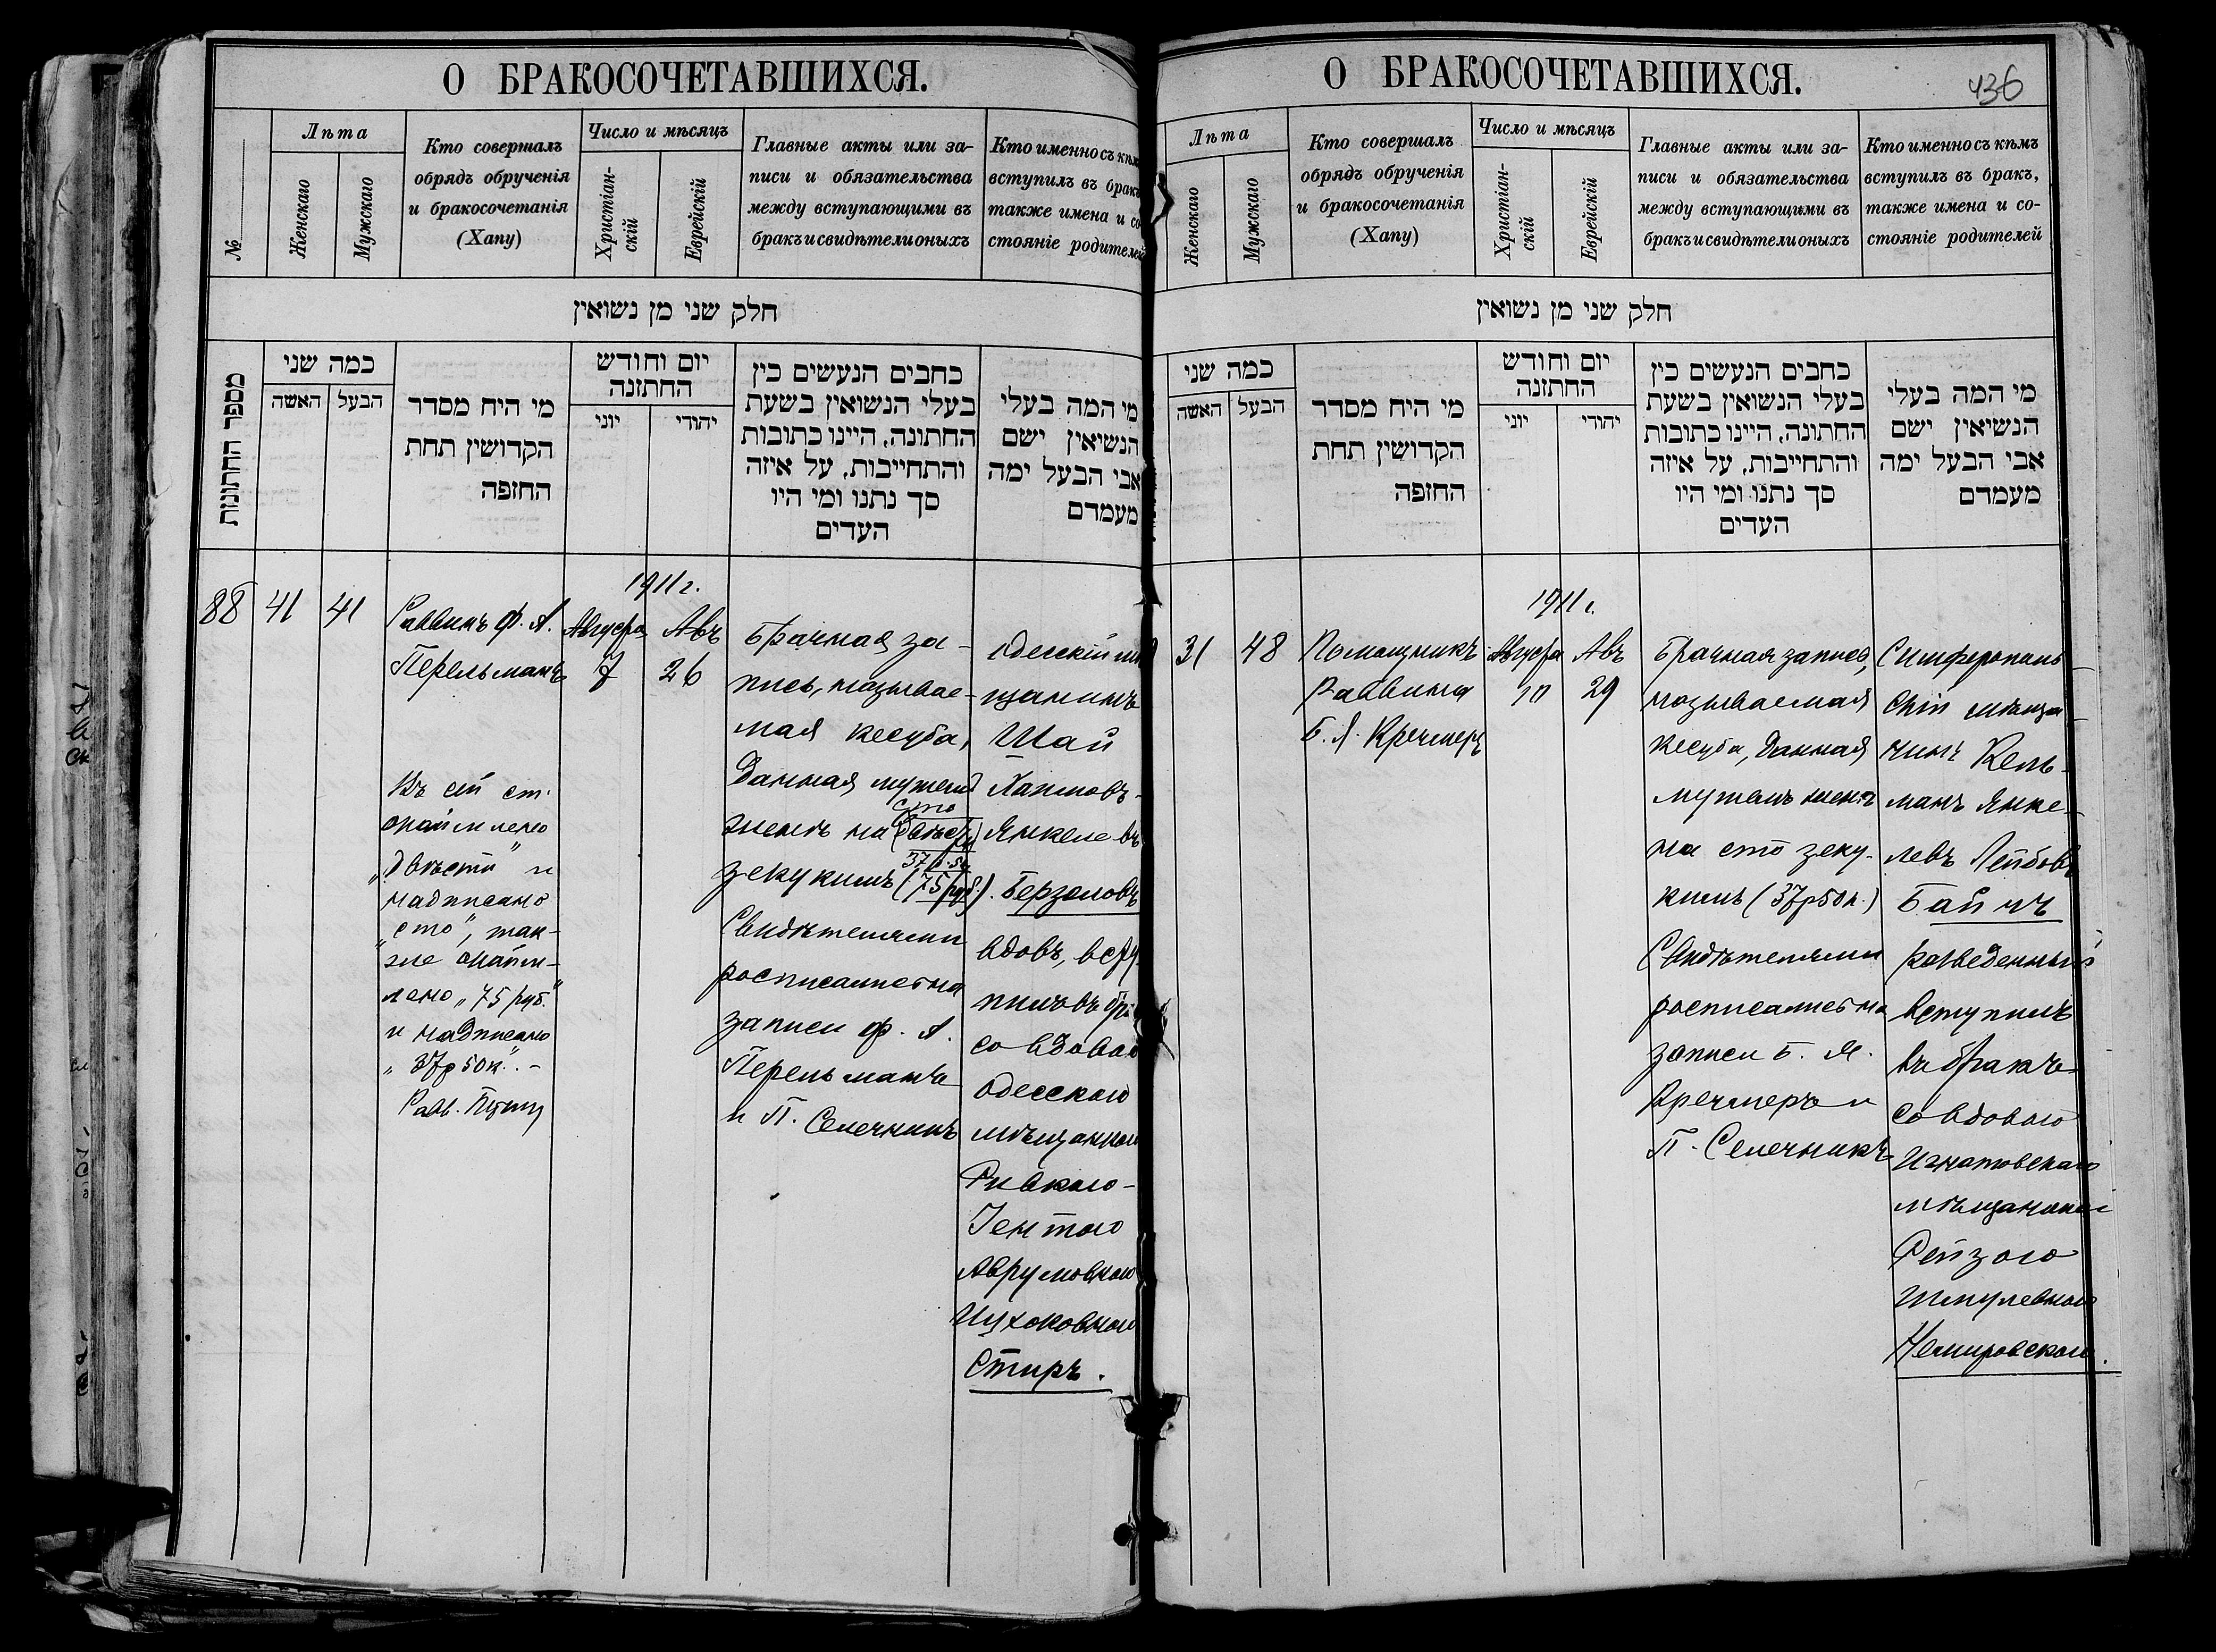 О БРАКОСОЧЕТАВШИХСЯ.
№
Лѣта
Женскаго
Мужскаго
Кто совершалъ
обрядъ обрученія
и бракосочетанія
(Хапу)
Число и мѣсяцъ
Христіан-
скій
Еврейскій
Главные акты или за-
писи и обязательства
между вступающими въ
бракъ и свидѣтели оныхъ
Кто именно съ кѣмъ
вступилъ въ бракъ
также имена и со-
стояніе родителей
חלק שני מן נשואין
מספר החתונות
כמה שני
האשה
הבעל
מי היח מסדר
הקדושין תחת
החזפה
יום וחודש
החתזנה
יוני
יהודי
כחבים הנעשים כין
בעלי הנשואין בשעת
החתונה, היינו כתובות
והתחייבות, על איזה
סך נתנו ומי היו
העדים
מי המה בעלי
הנשיאין ישם
אבי הבעל ימה
מעמדם
88
41
41
Раввинъ Ф. А.
Перельманъ
Къ сей ст.
„двѣсти" и
надписано
„сто", так-
же
лено „75 руб."
и надписано
„37р 50к." -
Рав.
1911 г.
Августа
7
Авъ
26
Брачная за-
пись, называе-
мая кесуба,
данная мужемъ
сто
женѣ на (двѣсти)
37р. 50к
зекукимъ (75 руб.).
Свидѣтелями
росписались на
записи Ф. А.
Перельманъ
и П. Селечникъ
Одесскій мѣ
щанинъ
Шай
Янкелевъ
Берзоловъ
вдовъ, всту-
пилъ въ бра
со вдовою
одесскою
мѣщанкою
Ривкою-
Іентою
Аврумовною
Ицховкою
Стиръ.
О БРАКОСОЧЕТАВШИХСЯ.
436
Лѣта
Женскаго
Мужскаго
Кто совершалъ
обрядъ обрученія
и бракосочетанія
(Хапу)
Число и мѣсяцъ
Христіан-
скій
Еврейскій
Главные акты или за-
писи и обязательства
между вступающими въ
бракъ и свидѣтели оныхъ
Кто именно съ кѣмъ
вступилъ въ бракъ,
также имена и со-
стояніе родителей
חלק שני מן נשואין
כמה שני
האשה
הבעל
מי היח מסדר
הקדושין תחת
החזפה
יום וחודש
החתזנה
יוני
יהודי
כחבים הנעשים כין
בעלי הנשואין בשעת
החתונה, היינו כתובות
והתחייבות, על איזה
סך נתנו ומי היו
העדים
מי המה בעלי
הנשיאין ישם
אבי הבעל ימה
מעמדם
31
48
Помощникъ
Раввина
Б. Я. Кречмеръ
1911 г.
Августа
10
Авъ
29
Брачная запись,
называемая
кесуба, данная
мужемъ женѣ
на сто зеку-
кимъ (37р 50к.)
Свидѣтелями
росписались на
записи Б. Я.
Кречмеръ и
П. Селечникъ
Симферополь-
скій мѣща-
нинъ Кель-
манъ Янке-
левъ Лейбовъ
Байчъ
разведенный
вступилъ
въ бракъ
со вдовою
Игнатовскою
мѣщанкою
Рейзою
Шмулевною
Немировскою.